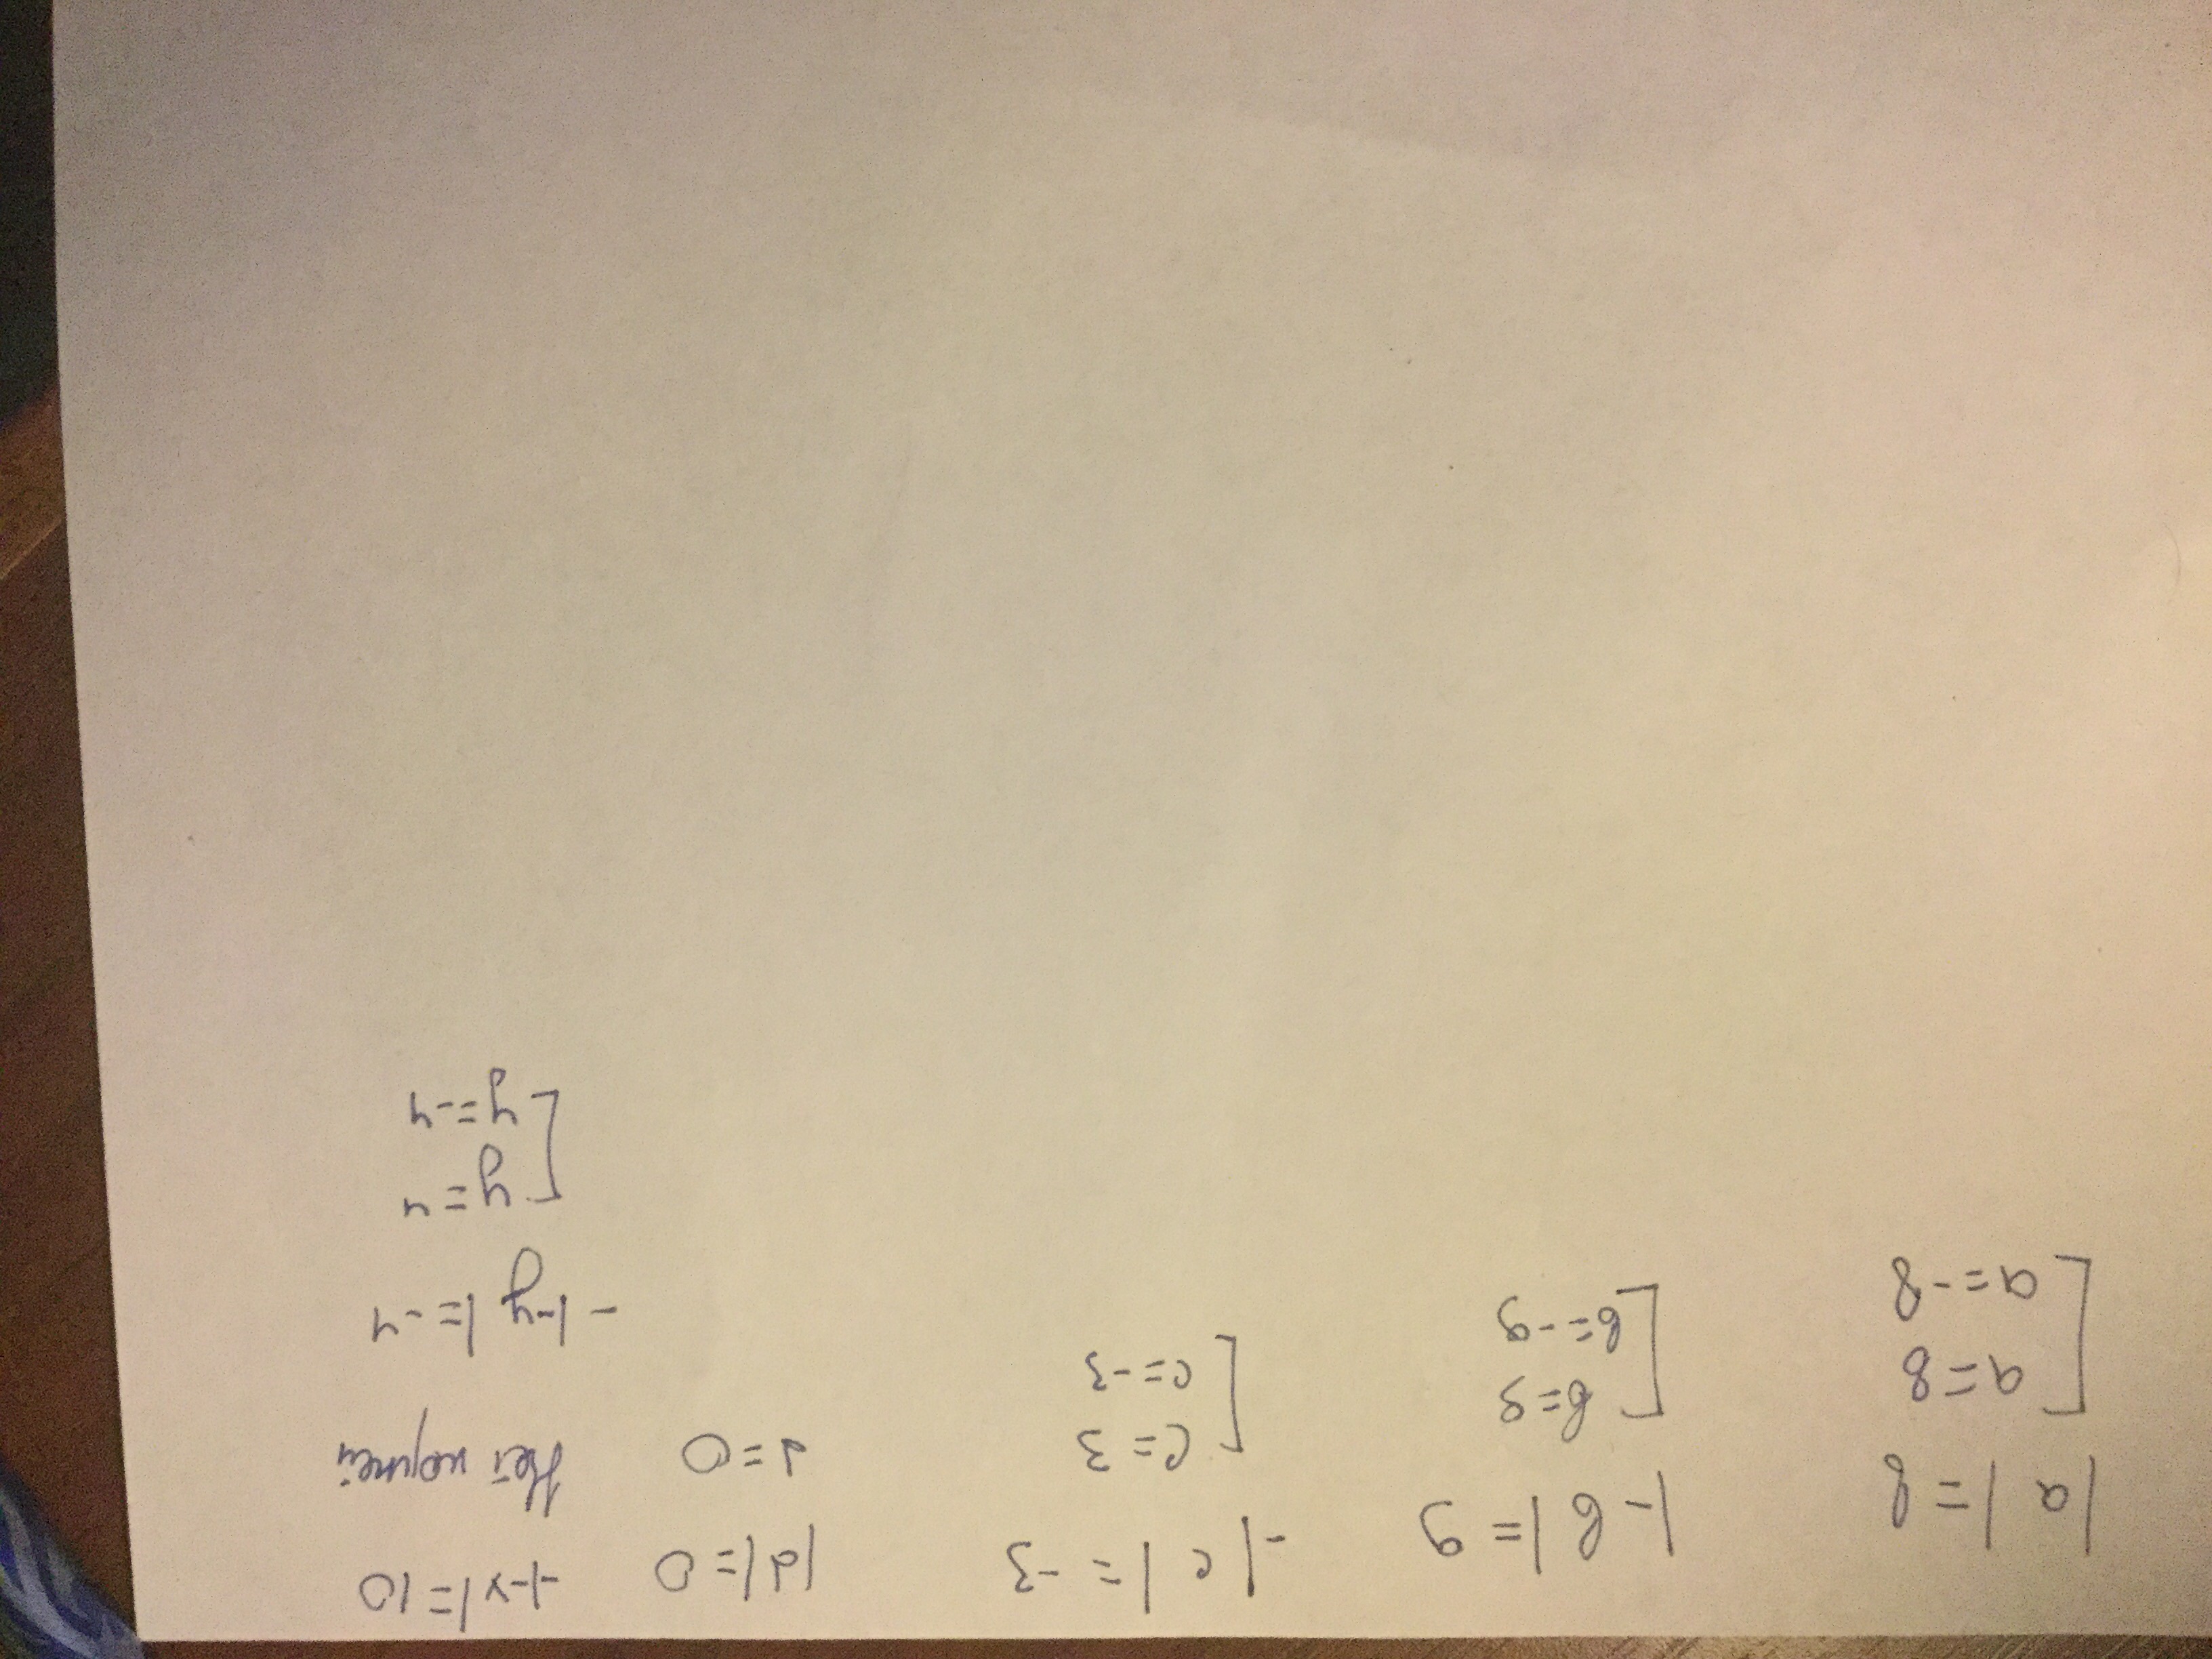 |a|=8
[a=8
a=-8
|-в|=9
[в=9
в=-9
-|c|=-3
[c=3
c=-3
|d|=0
d=0
-|-x|=10
Нет корней
-|-y|=-4
[y=4
y=-4